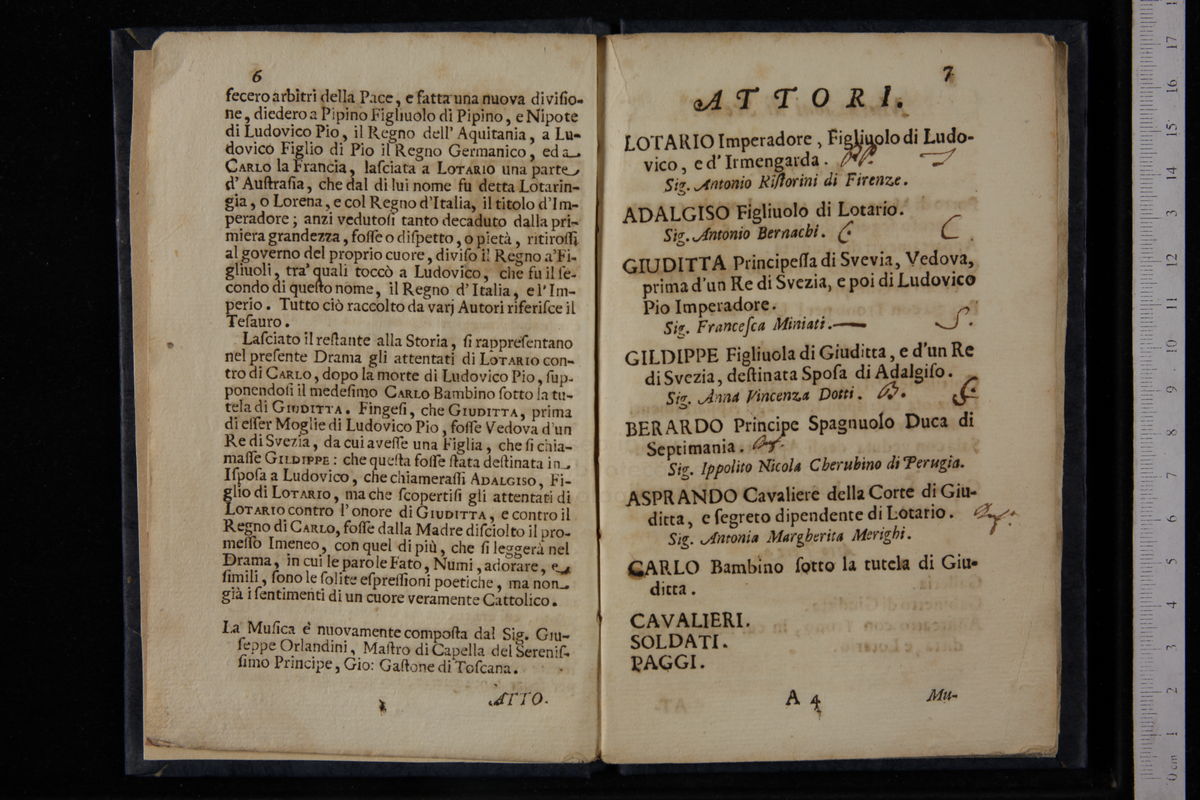 6
fecero arbitri della Pace, e fatta una nuova diviſio-
ne, diedero a Pipino Figliuolo di Pipino, e Nipote
di Ludovico Pio, il Regno dell' Aquitania, a Lu-
dovico Figlio di Pio il Regno Germanico, ed a
CARLO la Francia, laſciata a LOTARIO una parte
d' Auſtraſia, che dal di lui nome fu detta Lotarin-
gia, o Lorena, e col Regno d'Italia, il titolo d'Im-
peradore; anzi vedutoſi tanto decaduto dalla pri-
miera grandezza, foſſe o diſpetto, o pietà, ritiroſſi
al governo del proprio cuore, diviſo il Regno a'Fi-
gliuoli, tra' quali toccò a Ludovico, che fu il ſe-
condo di queſto nome, il Regno d' Italia, e l' Im-
perio. Tutto ciò raccolto da varj Autori riferiſce il
Teſauro.
Laſciato il reſtante alla Storia, ſi rappreſentano
nel preſente Drama gli attentati di LOTARIO con-
tro di CARLO, dopo la morte di Ludovico Pio, ſup-
ponendoſi il medeſimo CARLO Bambino ſotto la tu-
tela di GIUDITTA. Fingeſi, che GIUDITTA, prima
di eſſer Moglie di Ludovico Pio, foſſe Vedova d'un
Re di Svezia, da cui aveſſe una Figlia, che ſi chia-
maſſe GILDIPPE: che queſta foſſe ſtata deſtinata in
Iſpoſa a Ludovico, che chiameraſſi ADALGISO, Fi-
glio di LOTARIO, ma che ſcopertiſi gli attentati di
LOTARIO contro l' onore di GIUDITTA, e contro il
Regno di CARLO, foſſe dalla Madre diſciolto il pro-
meſſo Imeneo, con quel di più, che ſi leggerà nel
Drama, in cui le parole Fato, Numi, adorare, e
ſimili, ſono le ſolite eſpreſſioni poetiche, ma non
già i ſentimenti di un cuore veramente Cattolico.
La Muſica è nuovamente compoſta dal Sig. Giu-
ſeppe Orlandini, Maſtro di Capella del Sereniſ-
ſimo Principe, Gio: Gaſtone di Toſcana.
ATTO.
7
ATTORI.
LOTARIO Imperadore, Figliuolo di Ludo-
vico, e d' Irmengarda.
Sig. Antonio Riſtorini di Firenze.
ADALGISO Figliuolo di Lotario.
Sig. Antonio Bernachi. C. C.
GIUDITTA Principeſſa di Svevia, Vedova,
prima d'un Re di Svezia, e poi di Ludovico
Pio Imperadore.
Sig. Franceſca Miniati. S.
GILDIPPE Figliuola di Giuditta, e d'un Re
di Svezia, deſtinata Spoſa di Adalgiſo.
Sig. Anna Vincenza Dotti. B.
BERARDO Principe Spagnuolo Duca di
Septimania.
Sig. Ippolito Nicola Cherubino di Perugia.
ASPRANDO Cavaliere della Corte di Giu-
ditta, e ſegreto dipendente di Lotario.
Sig. Antonia Margherita Merighi.
CARLO Bambino ſotto la tutela di Giu-
ditta.
CAVALIERI.
SOLDATI.
PAGGI.
A 4 Mu-